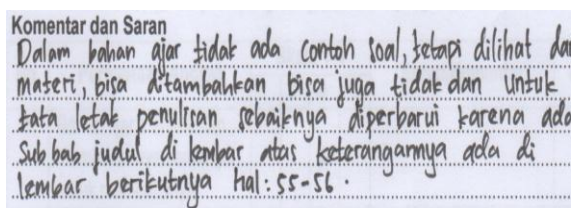 Komentar dan Saran
Dalam bahan ajar tidak ada contoh soal, tetapi dilihat dar
materi, bisa ditambahkan bisa juga tidak dan untuk
tata letak penulisan sebaiknya diperbarui karena ada
Sub bab judul di lembar atas keterangannya ada di
lembar berikutnya hal: 55-56.